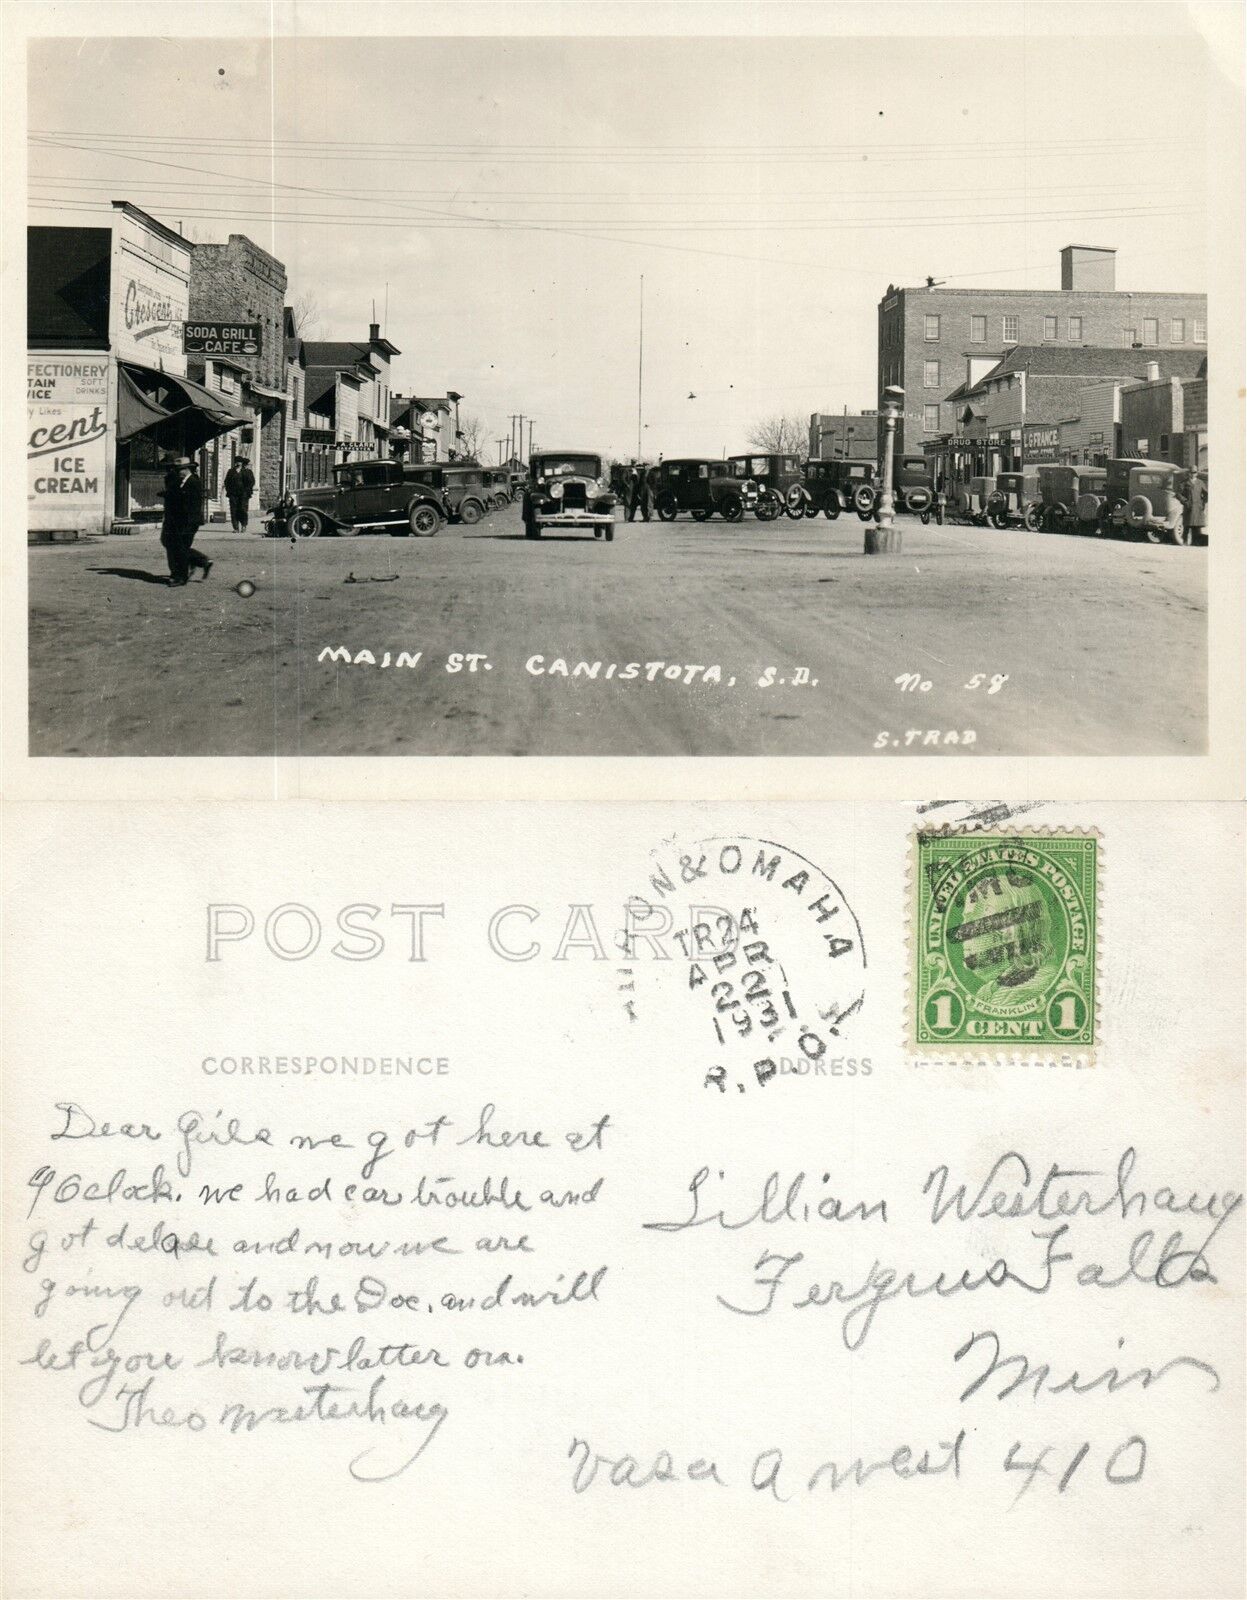 Crescent
SODA GRILL
CAFE
FECTIONERY
TAIN SOFT
VICE DRINKS
y Likes
cent
ICE
CREAM
A. CLARK
DRUG STORE
L.G. FRANCE
MAIN ST. CANISTOTA, S.D. No 58
S. TRAD
POST CARD
& OMAHA
TR 24
R.P.O.
UNITED STATES POSTAGE
FRANKLIN
1 CENT 1
CORRESPONDENCE
ADDRESS
Dear Girls we got here at
9 Oclock. we had car trouble and
got delaee and now we are
going out to the Doc. and will
let you know latter on.
Theo Westerhaug
Lillian Westerhaug
Fergus Falls
Minn
Vasa A west 410